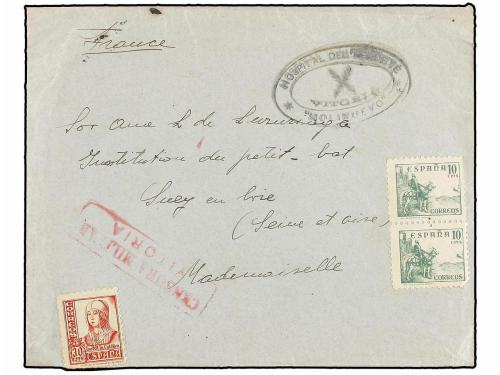 France
HOSPITAL DEL
VITORIA
"MOLINUEVO"
Sor Ane L de Luzuriaga
Institution du petit-bat
Sucy en brie
(Seine et oise)
Mademoiselle
CENSURA MILITAR
VITORIA
ESPAÑA 10
CTS
CORREOS
ESPAÑA 10
CTS
CORREOS
CORREOS
30
CTS
ESPAÑA